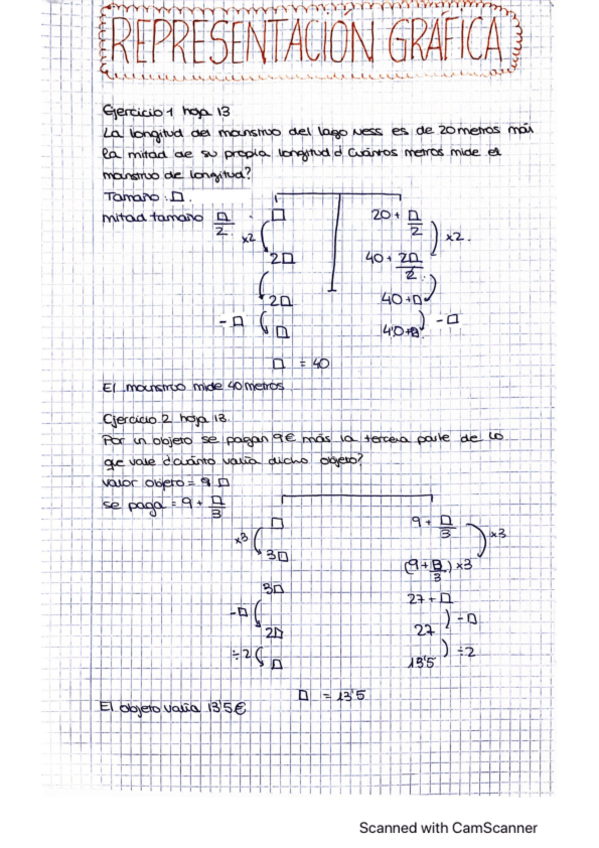 REPRESENTACIÓN GRÁFICA
Ejercicio 1 hoja 13
La longitud del mounstruo del lago Ness es de 20 metros más
la mitad de su propia longitud d Cuántos metros mide el
mounstruo de longitud?
Tamaño: □.
mitad tamaño □/2
□ 20 + □/2
x2 x2.
2□ 40 + 2□/2
2□ 40 + □
- □ - □
□ 40 + □
□ = 40
El mounstruo mide 40 metros
Ejercicio 2 hoja 13.
Por un objeto se pagan 9€ más la tercera parte de lo
que vale ¿cuánto valía dicho objeto?
valor objeto = 9 □
se paga = 9 + □/3
□ 9 + □/3
x3 x3
3□ (9 + □/3) x3
3□ 27 + □
- □ - □
2□ 27
÷2 ÷2
□ 13'5
□ = 13'5
El objeto valía 13'5€
Scanned with CamScanner